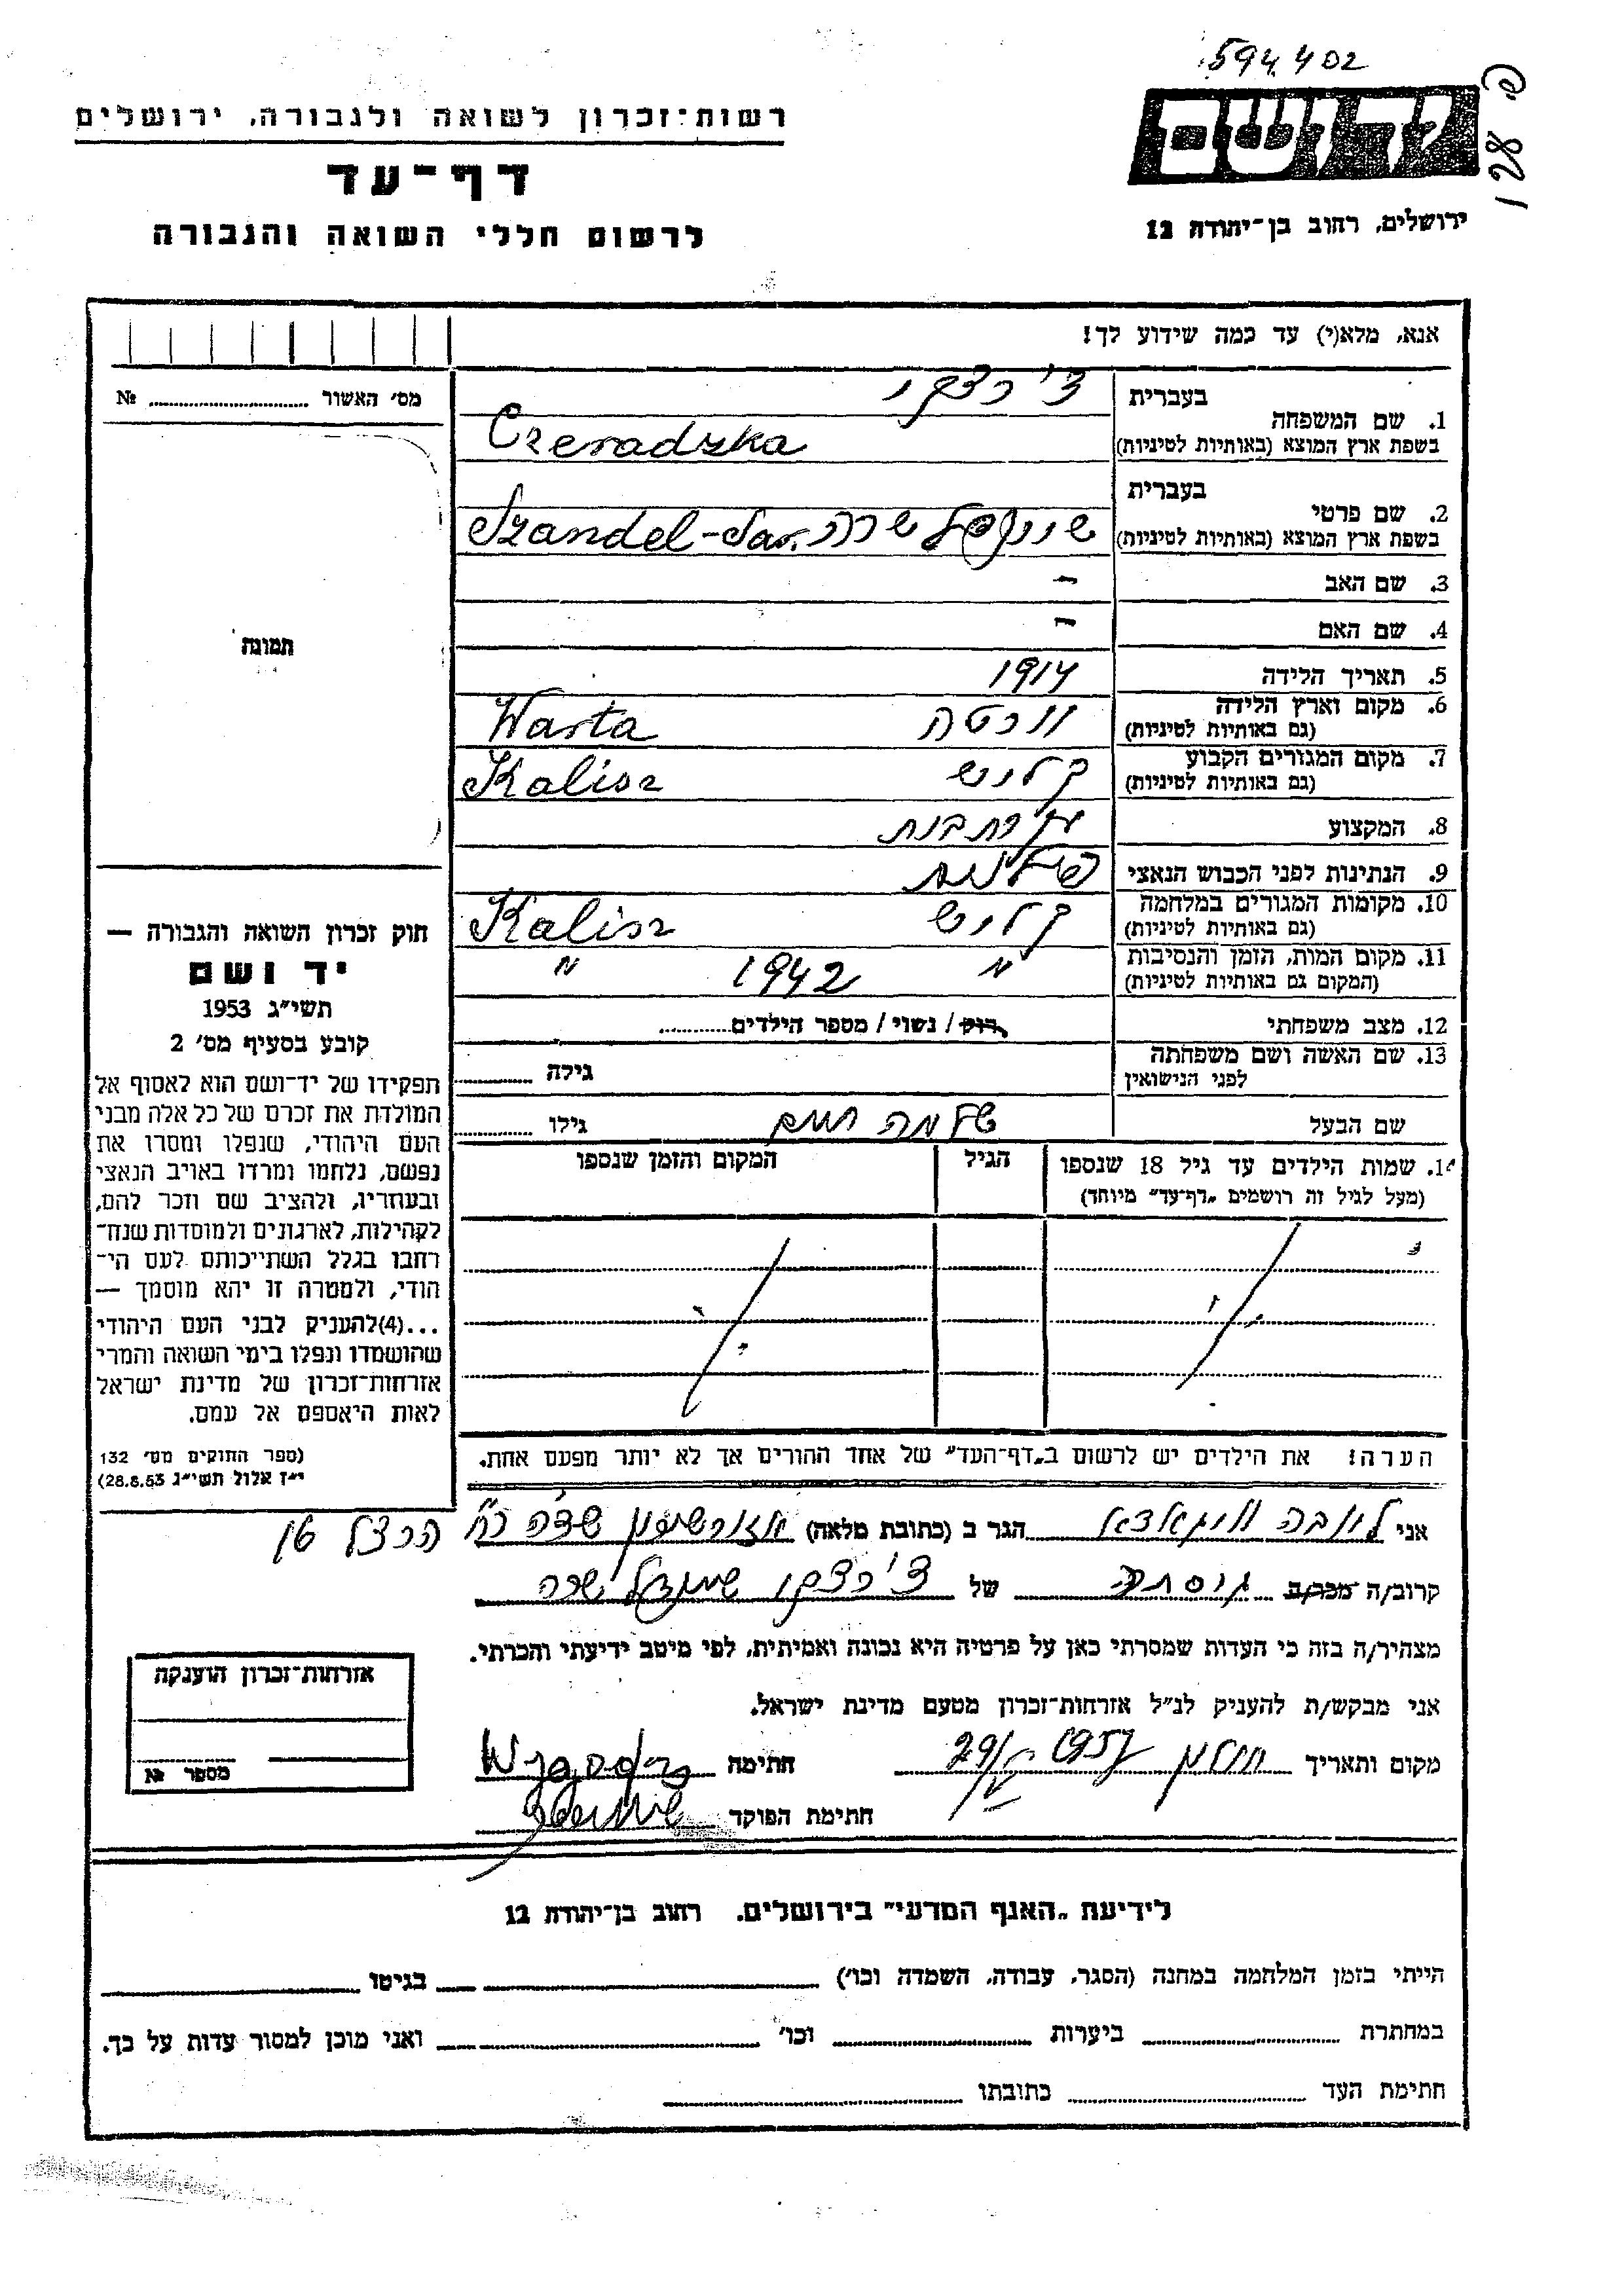 594402
רשות־זכרון לשואה ולגבורה, ירושלים
ידושם
דף־עד
ירושלים, רחוב בן־יהודה 12
לרשום חללי השואה והגבורה
אנא, מלא(י) עד כמה שידוע לך!
מס׳ האשור ........ №
תמונה
1. שם המשפחה
בעברית צ'רצקי
בשפת ארץ המוצא (באותיות לטיניות) Czeradzka
2. שם פרטי
בעברית
בשפת ארץ המוצא (באותיות לטיניות) שיינדל שרה Szandel-Sar.
3. שם האב –
4. שם האם –
5. תאריך הלידה 1914
6. מקום וארץ הלידה (גם באותיות לטיניות) וורטה Warta
7. מקום המגורים הקבוע (גם באותיות לטיניות) קליש Kalisz
8. המקצוע עקרת בית
9. הנתינות לפני הכבוש הנאצי פולנית
10. מקומות המגורים במלחמה (גם באותיות לטיניות) קליש Kalisz
11. מקום המות, הזמן והנסיבות (המקום גם באותיות לטיניות) " 1942 "
12. מצב משפחתי רוק / נשוי / מספר הילדים........
13. שם האשה ושם משפחתה לפני הנישואין גילה ........
שם הבעל שלמה חיים גילו ........
14. שמות הילדים עד גיל 18 שנספו
(מעל לגיל זה רושמים „דף־עד" מיוחד)
הגיל
המקום והזמן שנספו
הערה! את הילדים יש לרשום ב„דף־העד" של אחד ההורים אך לא יותר מפעם אחת.
חוק זכרון השואה והגבורה —
יד ושם
תשי״ג 1953
קובע בסעיף מס׳ 2
תפקידו של יד־ושם הוא לאסוף אל
המולדת את זכרם של כל אלה מבני
העם היהודי, שנפלו ומסרו את
נפשם, נלחמו ומרדו באויב הנאצי
ובעוזריו, ולהציב שם וזכר להם,
לקהילות, לארגונים ולמוסדות שנח־
רבו בגלל השתייכותם לעם הי־
הודי, ולמטרה זו יהא מוסמך —
...(4)להעניק לבני העם היהודי
שהושמדו ונפלו בימי השואה והמרי
אזרחות־זכרון של מדינת ישראל
לאות היאספם אל עמם.
(ספר החוקים מס׳ 132
י״ז אלול תשי״ג 28.8.53)
אני ליובה הגר ב (כתובת מלאה) הרצל
קרוב/ה מכר/ה גיסתה של צ'רצקי שיינדל שרה
מצהיר/ה בזה כי העדות שמסרתי כאן על פרטיה היא נכונה ואמיתית, לפי מיטב ידיעתי והכרתי.
אני מבקש/ת להעניק לנ״ל אזרחות־זכרון מטעם מדינת ישראל.
מקום ותאריך חולון 1957 חתימה
חתימת הפוקד
אזרחות־זכרון הוענקה
מספר №
לידיעת „האגף המדעי" בירושלים, רחוב בן־יהודה 12
הייתי בזמן המלחמה במחנה (הסגר, עבודה, השמדה וכו׳) ........ בגיטו ........
במחתרת ........ ביערות ........ וכו׳ ........ ואני מוכן למסור עדות על כך.
חתימת העד ........ כתובתו ........